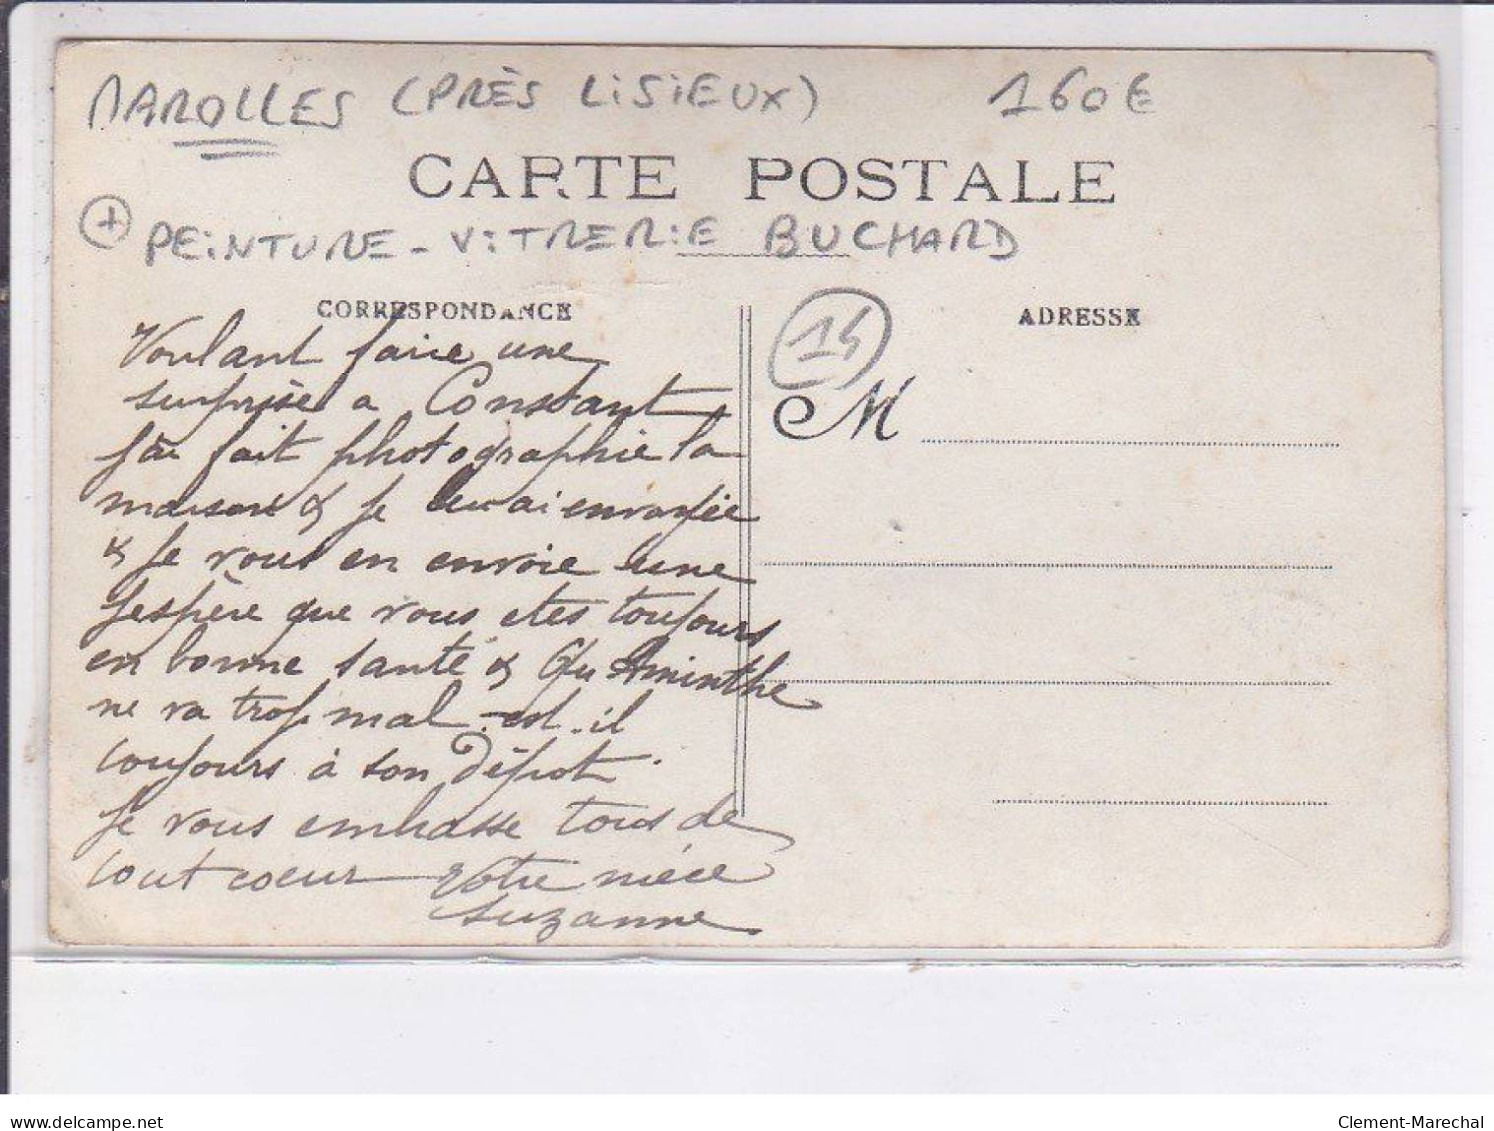 MAROLLES (PRÈS LISIEUX) 160€
CARTE POSTALE
+ PEINTURE - VITRERIE BUCHARD
CORRESPONDANCE
Voulant faire une
surprise a Constant
j'ai fait photographie la
maison & je lui ai envoyée
& je vous en envoie une
J'espère que vous etes toujours
en bonne santé & qu Aminthe
ne va trop mal - est-il
toujours à son Dépot.
Je vous embrasse tous de
tout coeur Votre nièce
Suzanne
14
ADRESSE
M
delcampe.net
Clement-Marechal